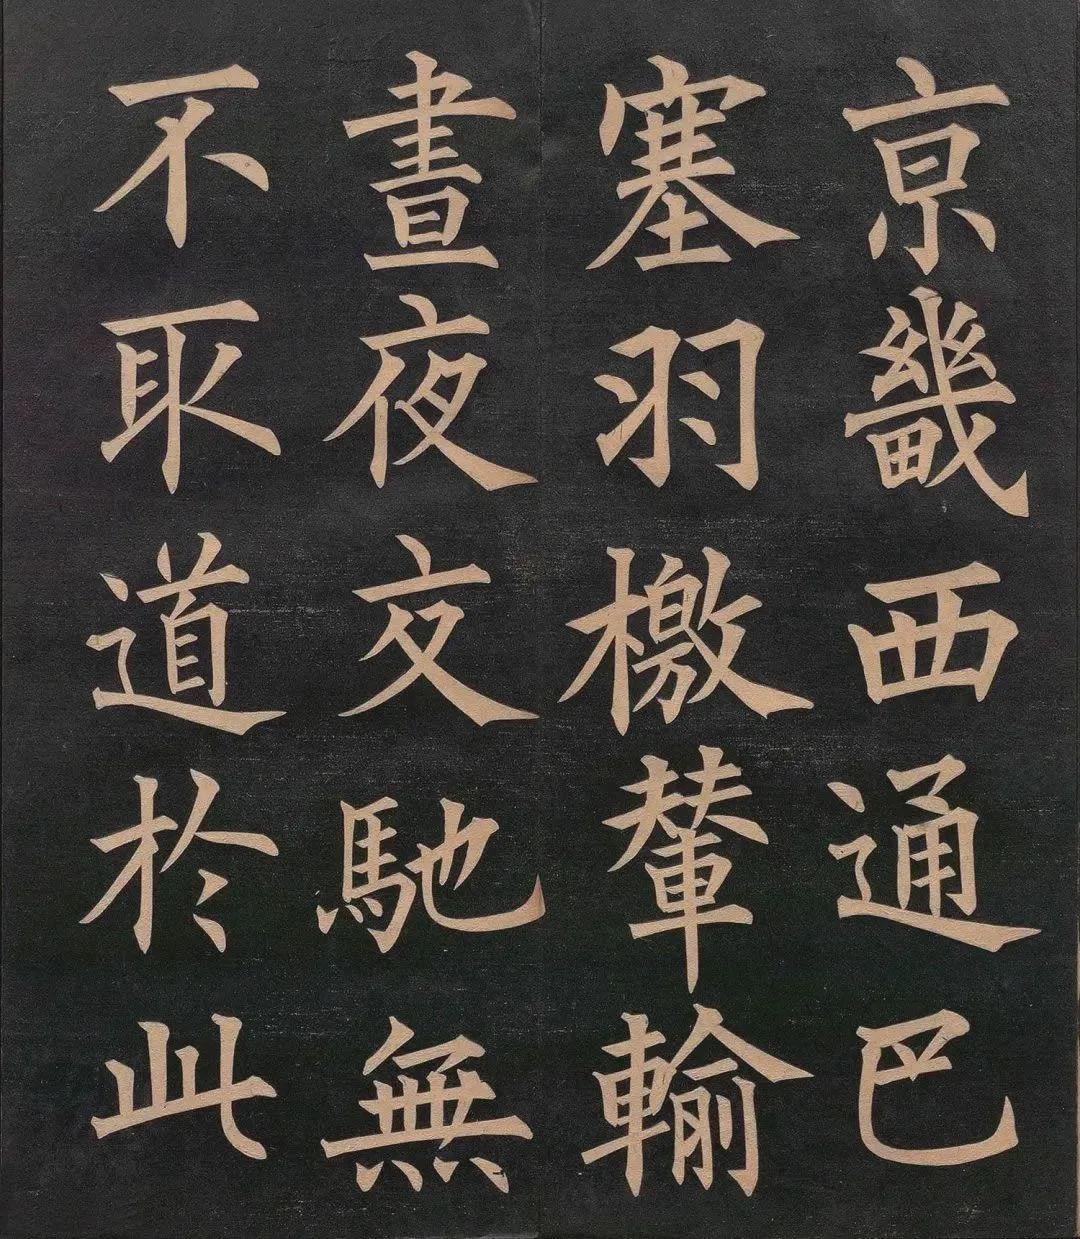 京畿西通巴
塞羽檄輦輸
晝夜交馳無
不取道於此